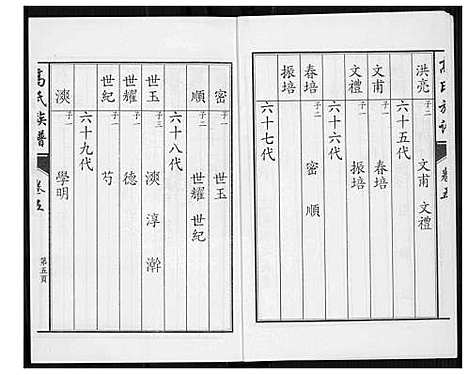 高氏族譜 卷五
洪亮 子二 文甫 文禮
六十五代
文甫 子一 春培
文禮 子一 振培
六十六代
春培 子二 密 順
振培
六十七代
密 子一 世玉
順 子二 世耀 世紀
六十八代
世玉 子三 渶 淳 澣
世耀 子一 德
世紀 子一 芍
六十九代
渶 子一 學明
高氏族譜 卷五 第五頁